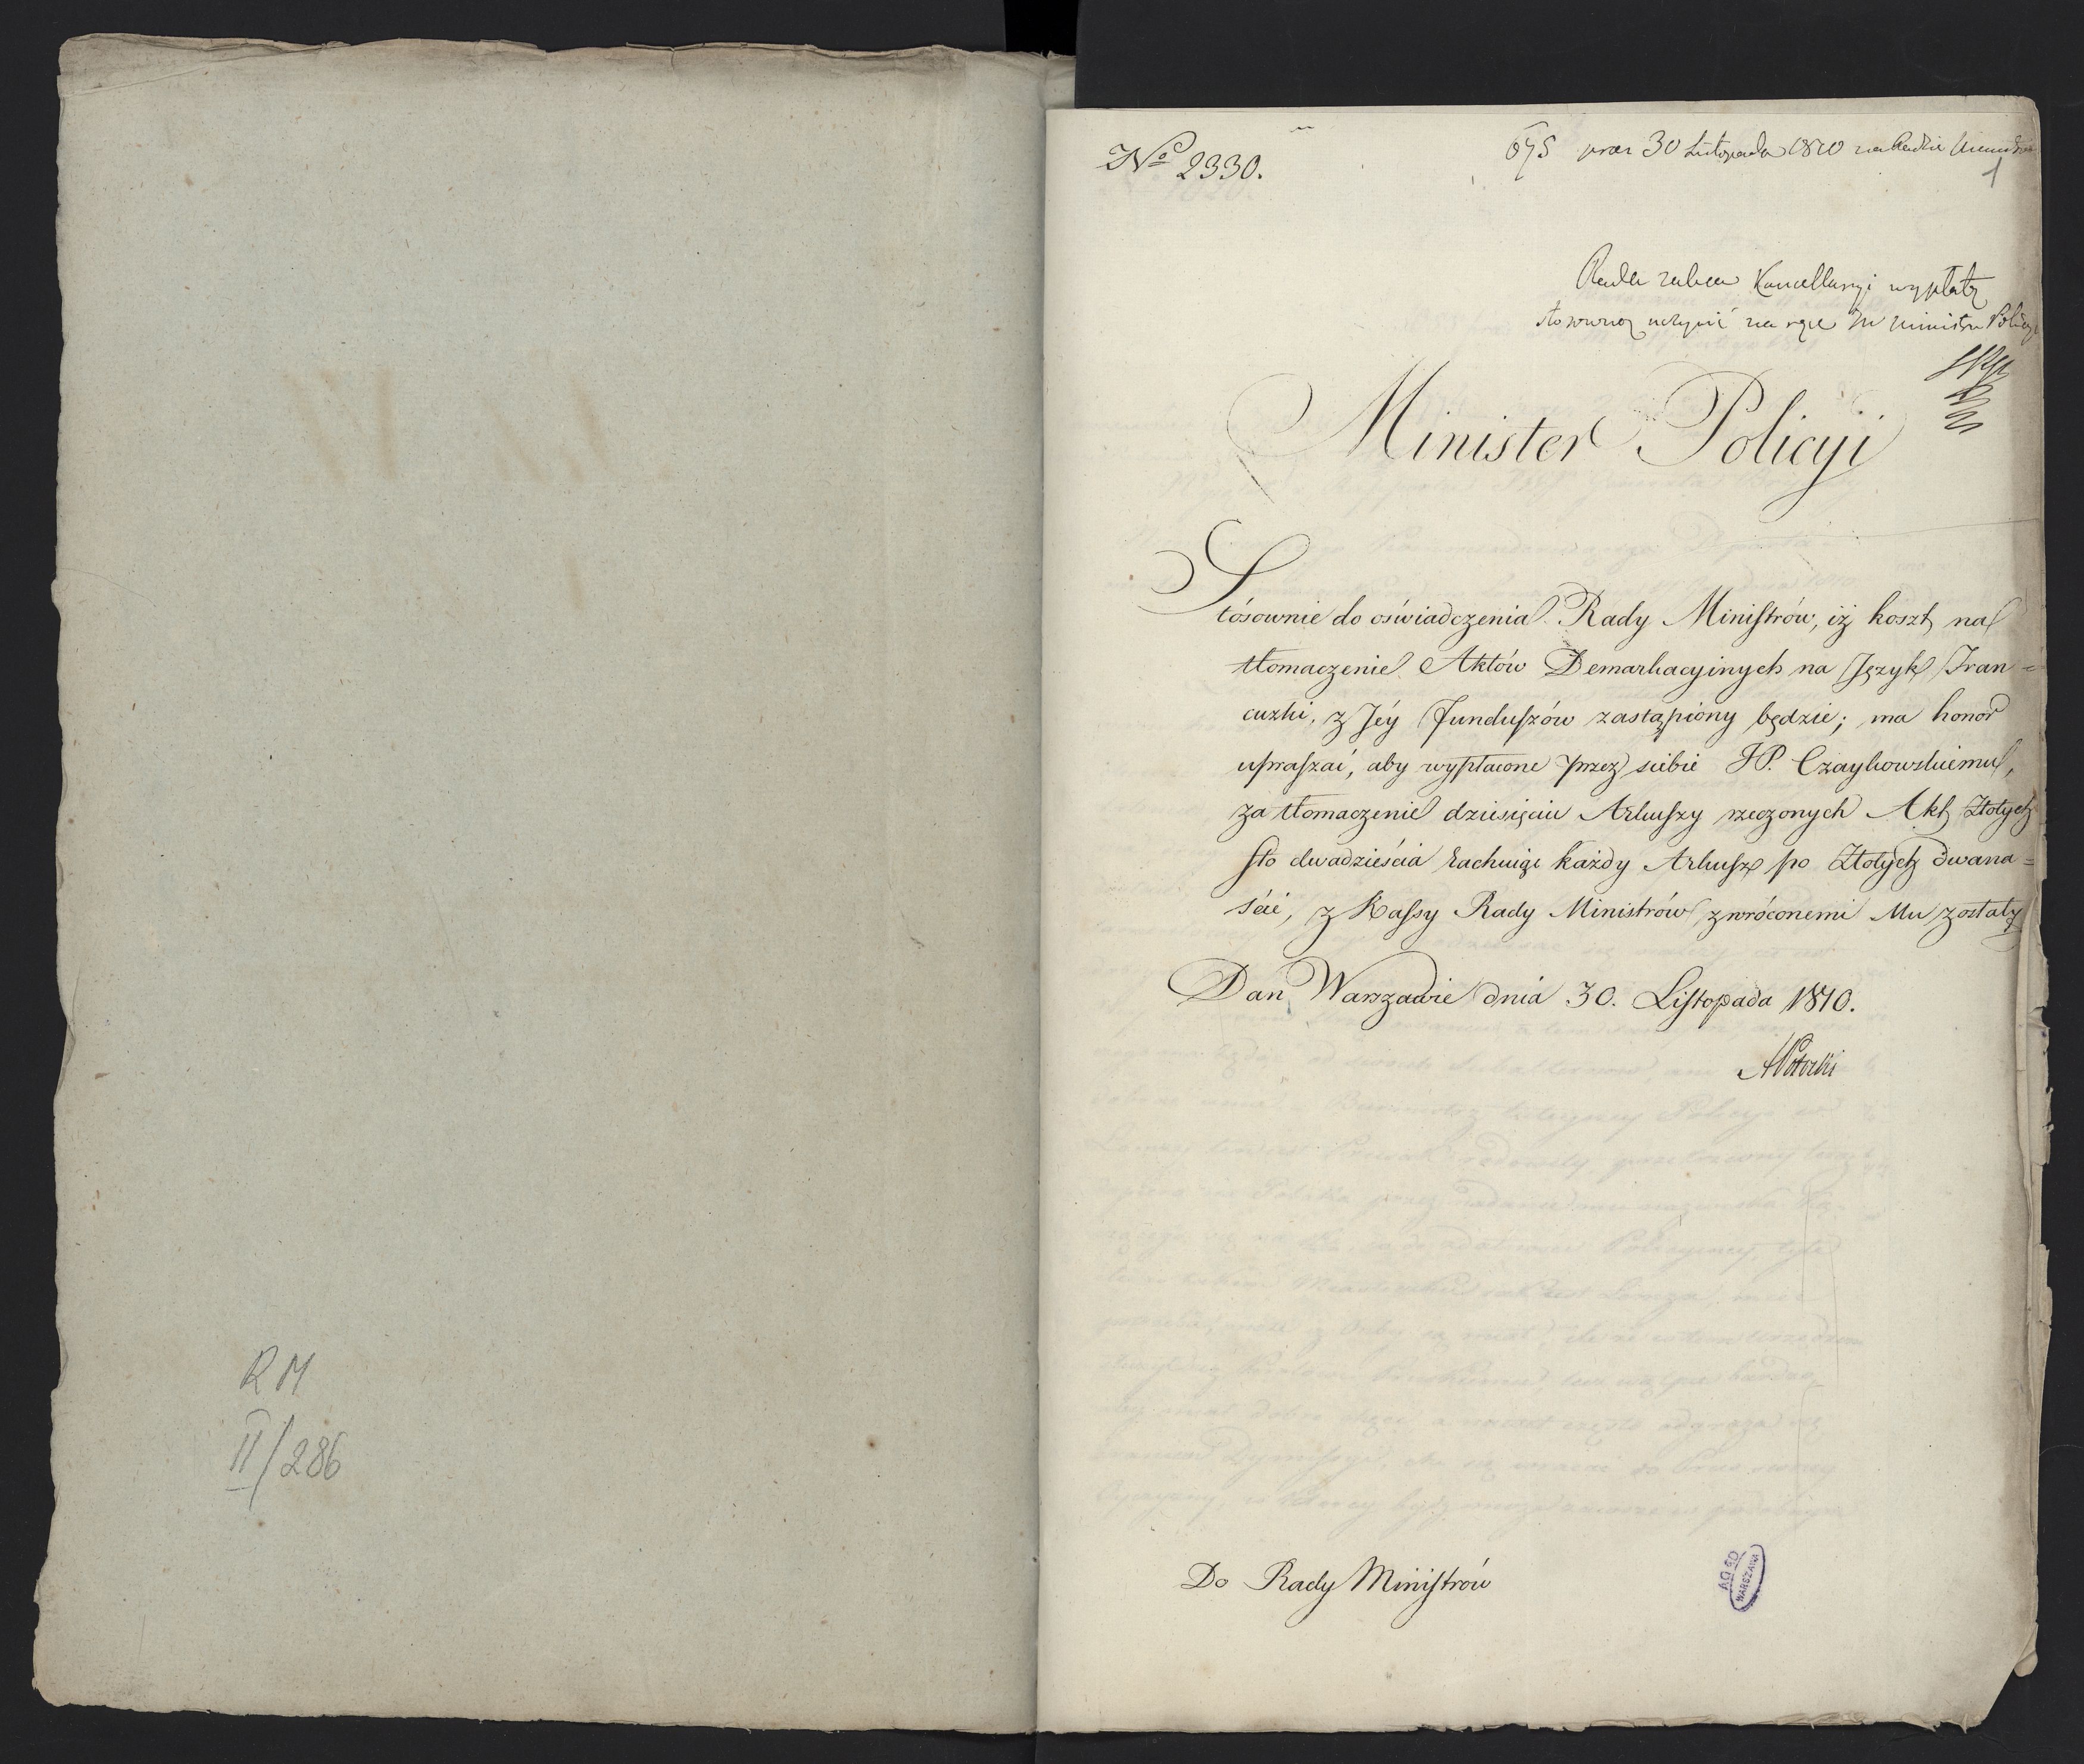 RM
II/286
No 2330.
675 prez 30 Listopada 1810 na Radzie Ministrów
1
Rada zaleca Kancellaryi wypłatę
stosowną uczynić na ręce JW Ministra Policyi
Minister Policyi
Stósownie do oświadczenia Rady Ministrów, iż koszt na
tłomaczenie Aktów Demarkacyinych na Język Fran=
cuzki, z Jéy Funduszów zastąpiony będzie; ma honor
upraszać, aby wypłacone przez siebie JP. Czaykowskiemu,
za tłomaczenie dziesięciu Arkuszy rzeczonych Akt Złotych
sto dwadzieścia rachuiąc każdy Arkusz po Złotych dwana=
ście, z Kassy Rady Ministrów zwróconemi Mu zostały
Dan Warszawie dnia 30. Listopada 1810.
APotocki
Do Rady Ministrów
AG AD
WARSZAWA